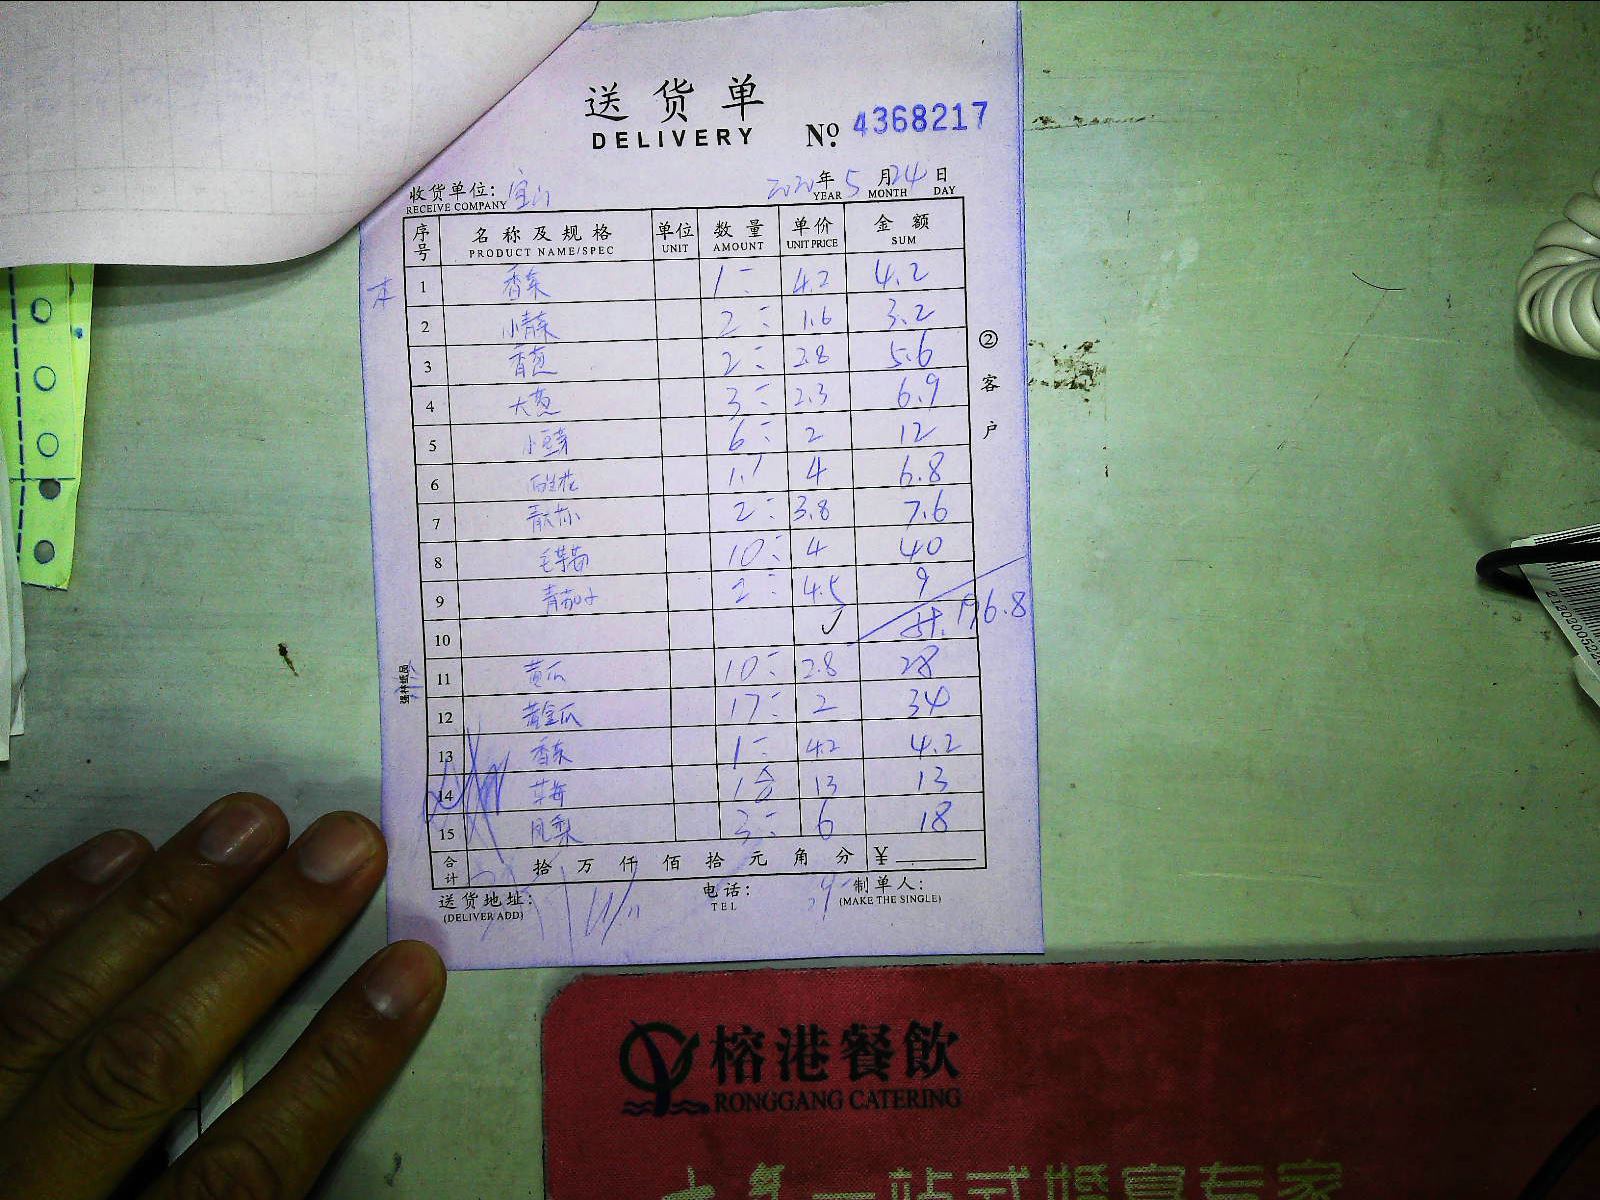 送货单
DELIVERY
№ 4368217
收货单位:
RECEIVE COMPANY
2020年 5月 24日
YEAR MONTH DAY
序号 名称及规格 单位 数量 单价 金额
PRODUCT NAME/SPEC UNIT AMOUNT UNIT PRICE SUM
本 1 香菜 1 4.2 4.2
2 小青菜 2 1.6 3.2
3 香葱 2 2.8 5.6
4 大葱 3 2.3 6.9
5 小豆芽 6 2 12
6 1.7 4 6.8
7 2 3.8 7.6
8 10 4 40
9 青茄子 2 4.5 9
10 计.196.8
11 黄瓜 10 2.8 28
12 黄金瓜 17 2 34
13 香菜 1 4.2 4.2
14 草莓 1盒 13 13
15 凤梨 3 6 18
合计 拾 万 仟 佰 拾 元 角 分 ¥
送货地址: 电话: 制单人:
(DELIVER ADD) TEL (MAKE THE SINGLE)
②客户
强林纸品
榕港餐飲
RONGGANG CATERING
一站式婚宴专家